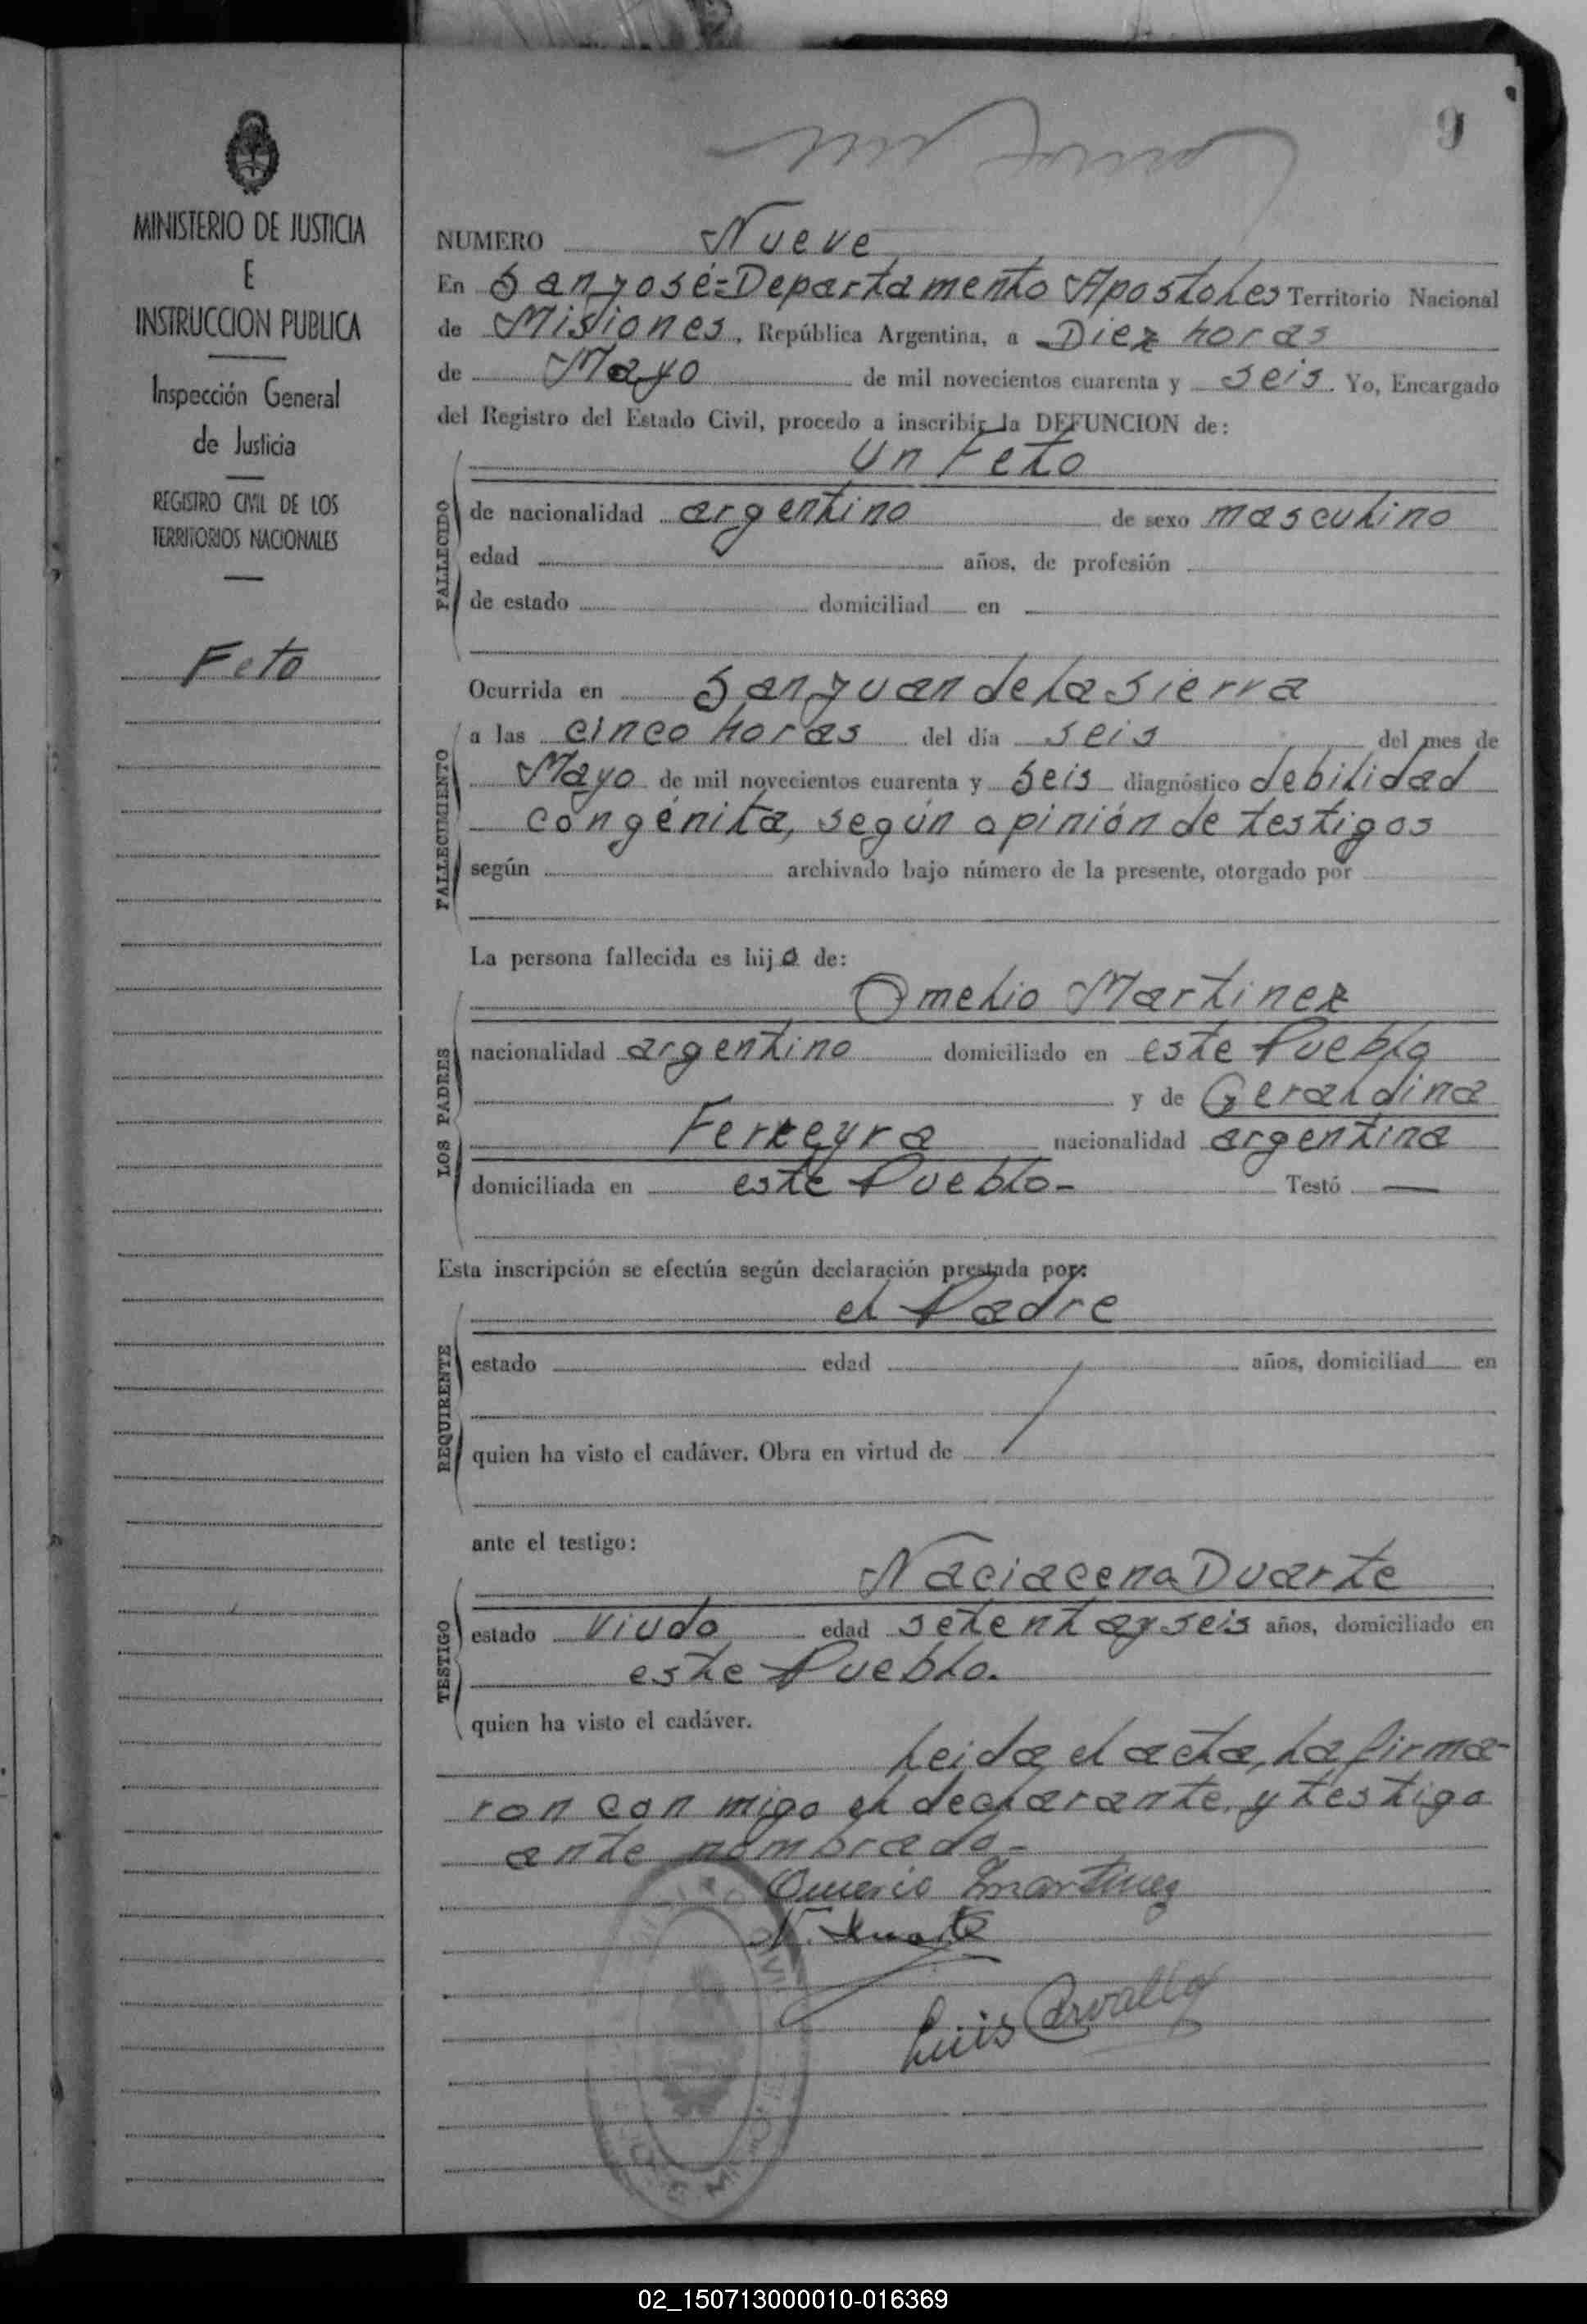 9
MINISTERIO DE JUSTICIA
E
INSTRUCCION PUBLICA
Inspección General
de Justicia
REGISTRO CIVIL DE LOS
TERRITORIOS NACIONALES
Feto
NUMERO Nueve
En San José=Departamento Apostoles Territorio Nacional
de Misiones, República Argentina, a Diez horas
de Mayo de mil novecientos cuarenta y seis. Yo, Encargado
del Registro del Estado Civil, procedo a inscribir la DEFUNCION de:
Un Feto
FALLECIDO
de nacionalidad argentino de sexo masculino
edad años, de profesión
de estado domiciliad en
Ocurrida en San Juan de la Sierra
FALLECIMIENTO
a las cinco horas del día seis del mes de
Mayo de mil novecientos cuarenta y seis diagnóstico debilidad
congénita, según opinión de testigos
según archivado bajo número de la presente, otorgado por
La persona fallecida es hijo de:
LOS PADRES
Omelio Martinez
nacionalidad argentino domiciliado en este Pueblo
y de Geraldina
Ferreyra nacionalidad argentina
domiciliada en este Pueblo- Testó —
Esta inscripción se efectúa según declaración prestada por:
REQUIRENTE
el Padre
estado edad años, domiciliad en
quien ha visto el cadáver. Obra en virtud de
ante el testigo:
TESTIGO
Naciacena Duarte
estado viudo edad setenta y seis años, domiciliado en
este Pueblo.
quien ha visto el cadáver.
Leida el acta, la firma-
ron con migo el declarante, y testigo
ante nombrado-
Omerio Martinez
N. Duarte
Luis Carvallo
02_150713000010-016369